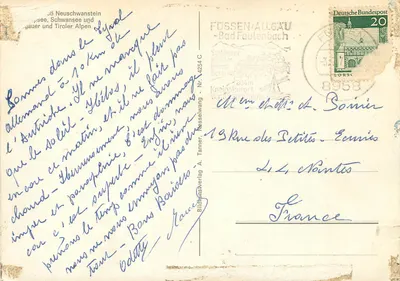 Neuschwanstein
see, Schwansee und
auer und Tiroler Alpen
Sommes dans le Tyrol
allemand à 10 km de
l'Autriche. Il ne manque
que le soleil - Hélas, il pleut
encore ce matin, et il ne fait pas
chaud - Heureusement, nous avons
imper et parapluie. C'est dommage
car c'est superbe - Enfin, nous
prenons le temps comme il vient
nous ne nous ennuyons pas du
tout - Bons Baisers
Odette
A. Tanner, Nesselwang - Nr.
FÜSSEN/ALLGÄU
-Bad Faulenbach
Deutsche Bundespost
20
LORSCH
8958
Mme et Mr Poirier
19 Rue des Petites-Ecuries
44 Nantes
France